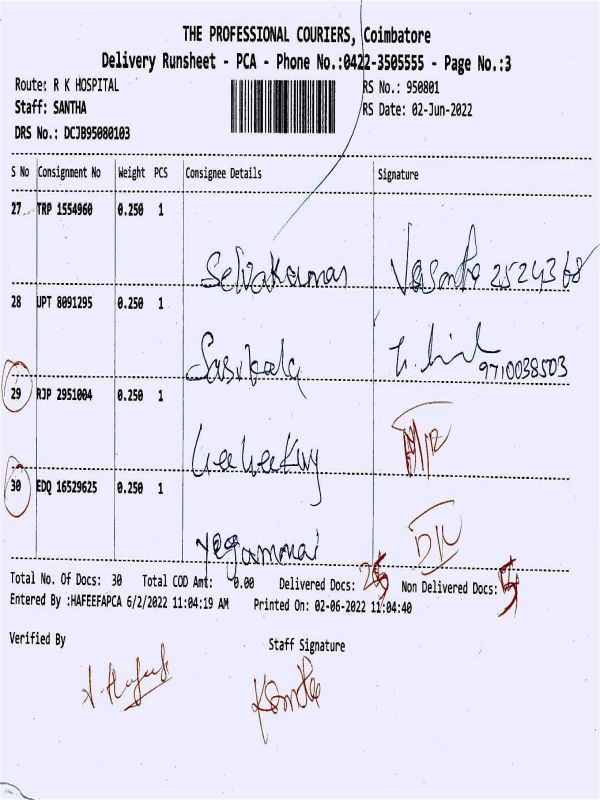 THE PROFESSIONAL COURIERS, Coimbatore
Delivery Runsheet - PCA - Phone No.:0422-3505555 - Page No.:3
Route: R K HOSPITAL RS No.: 950801
Staff: SANTHA RS Date: 02-Jun-2022
DRS No.: DCJB95080103
S No Consignment No Weight PCS Consignee Details Signature
27 TRP 1554960 0.250 1
Selvakumar Vasantha 2524368
28 UPT 8091295 0.250 1
Sasikala 9710038503
29 RJP 2951004 0.250 1
30 EDQ 16529625 0.250 1
Yegammai
Total No. Of Docs: 30 Total COD Amt: 0.00 Delivered Docs: Non Delivered Docs:
Entered By :HAFEEFAPCA 6/2/2022 11:04:19 AM Printed On: 02-06-2022 11:04:40
Verified By Staff Signature